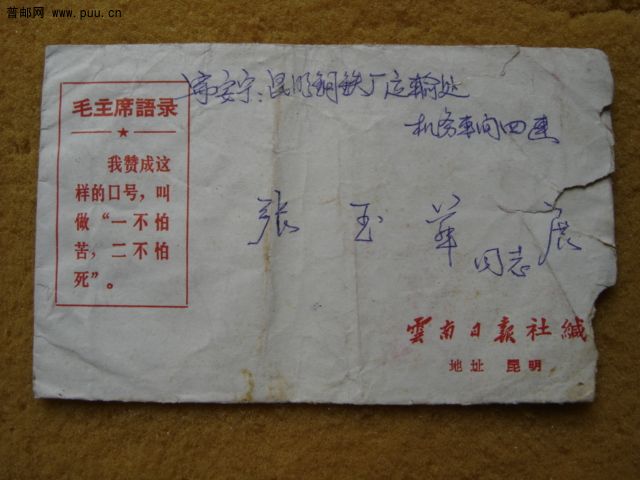 普邮网 www.puu.cn
毛主席語录
我赞成这
样的口号，叫
做“一不怕
苦，二不怕
死”。
安宁：昆明钢铁厂运输处
机务车间四连
张玉华
同志
雲南日报社緘
地址 昆明